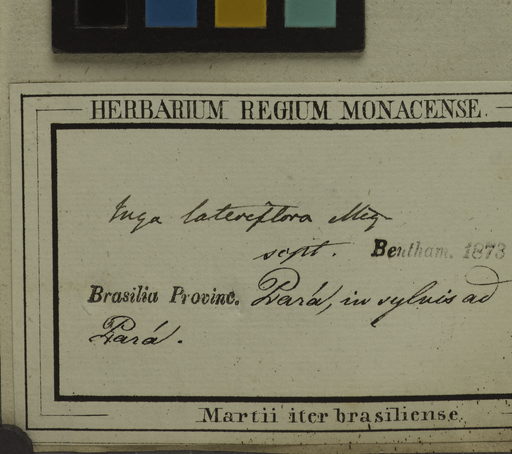 HERBARIUM REGIUM MONACENSE.
Inga lateriflora Miq
scpit. Bentham. 1873
Brasilia Provinc. Pará, in sylvis ad
Pará.
Martii iter brasiliense.